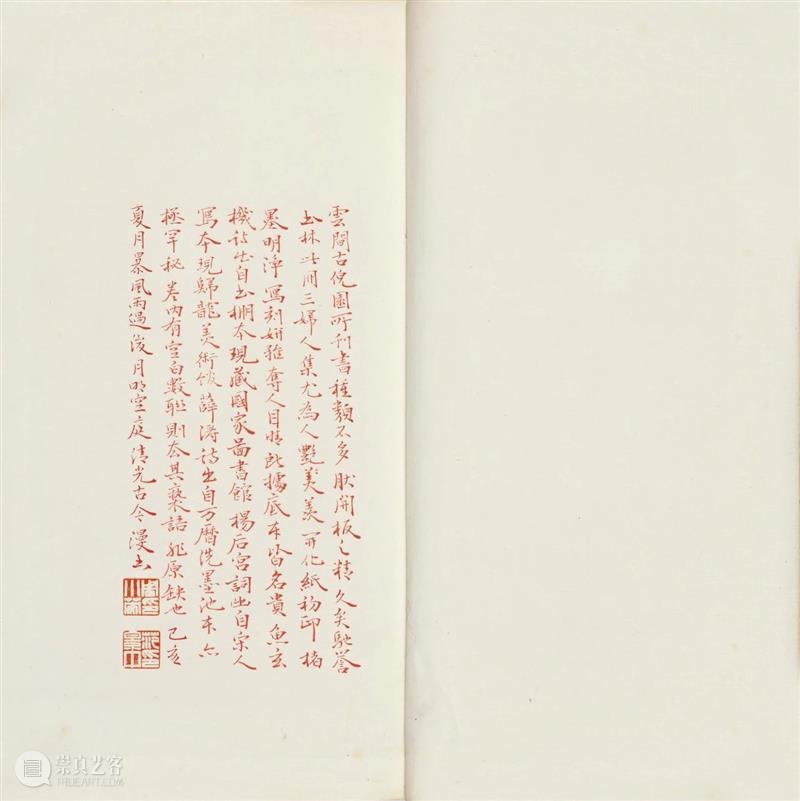 雲間古倪園所刊書種類不多肰開板之精久矣馳譽
書林此冊三婦人集尤為人艷羡羡開化紙初印楮
墨明淨寫刻妍雅奪人目睛所據底本皆名貴魚玄
機詩出自書棚本現藏國家圖書館楊后宮詞出自宋人
寫本現歸龍美術館薛濤詩出自万曆洗墨池本亦
極罕秘卷內有空白數聯則本其褻語非原缺也己亥
夏月暴風雨過後月明空庭清光古今漫書
崇真艺客
TRUEART.COM